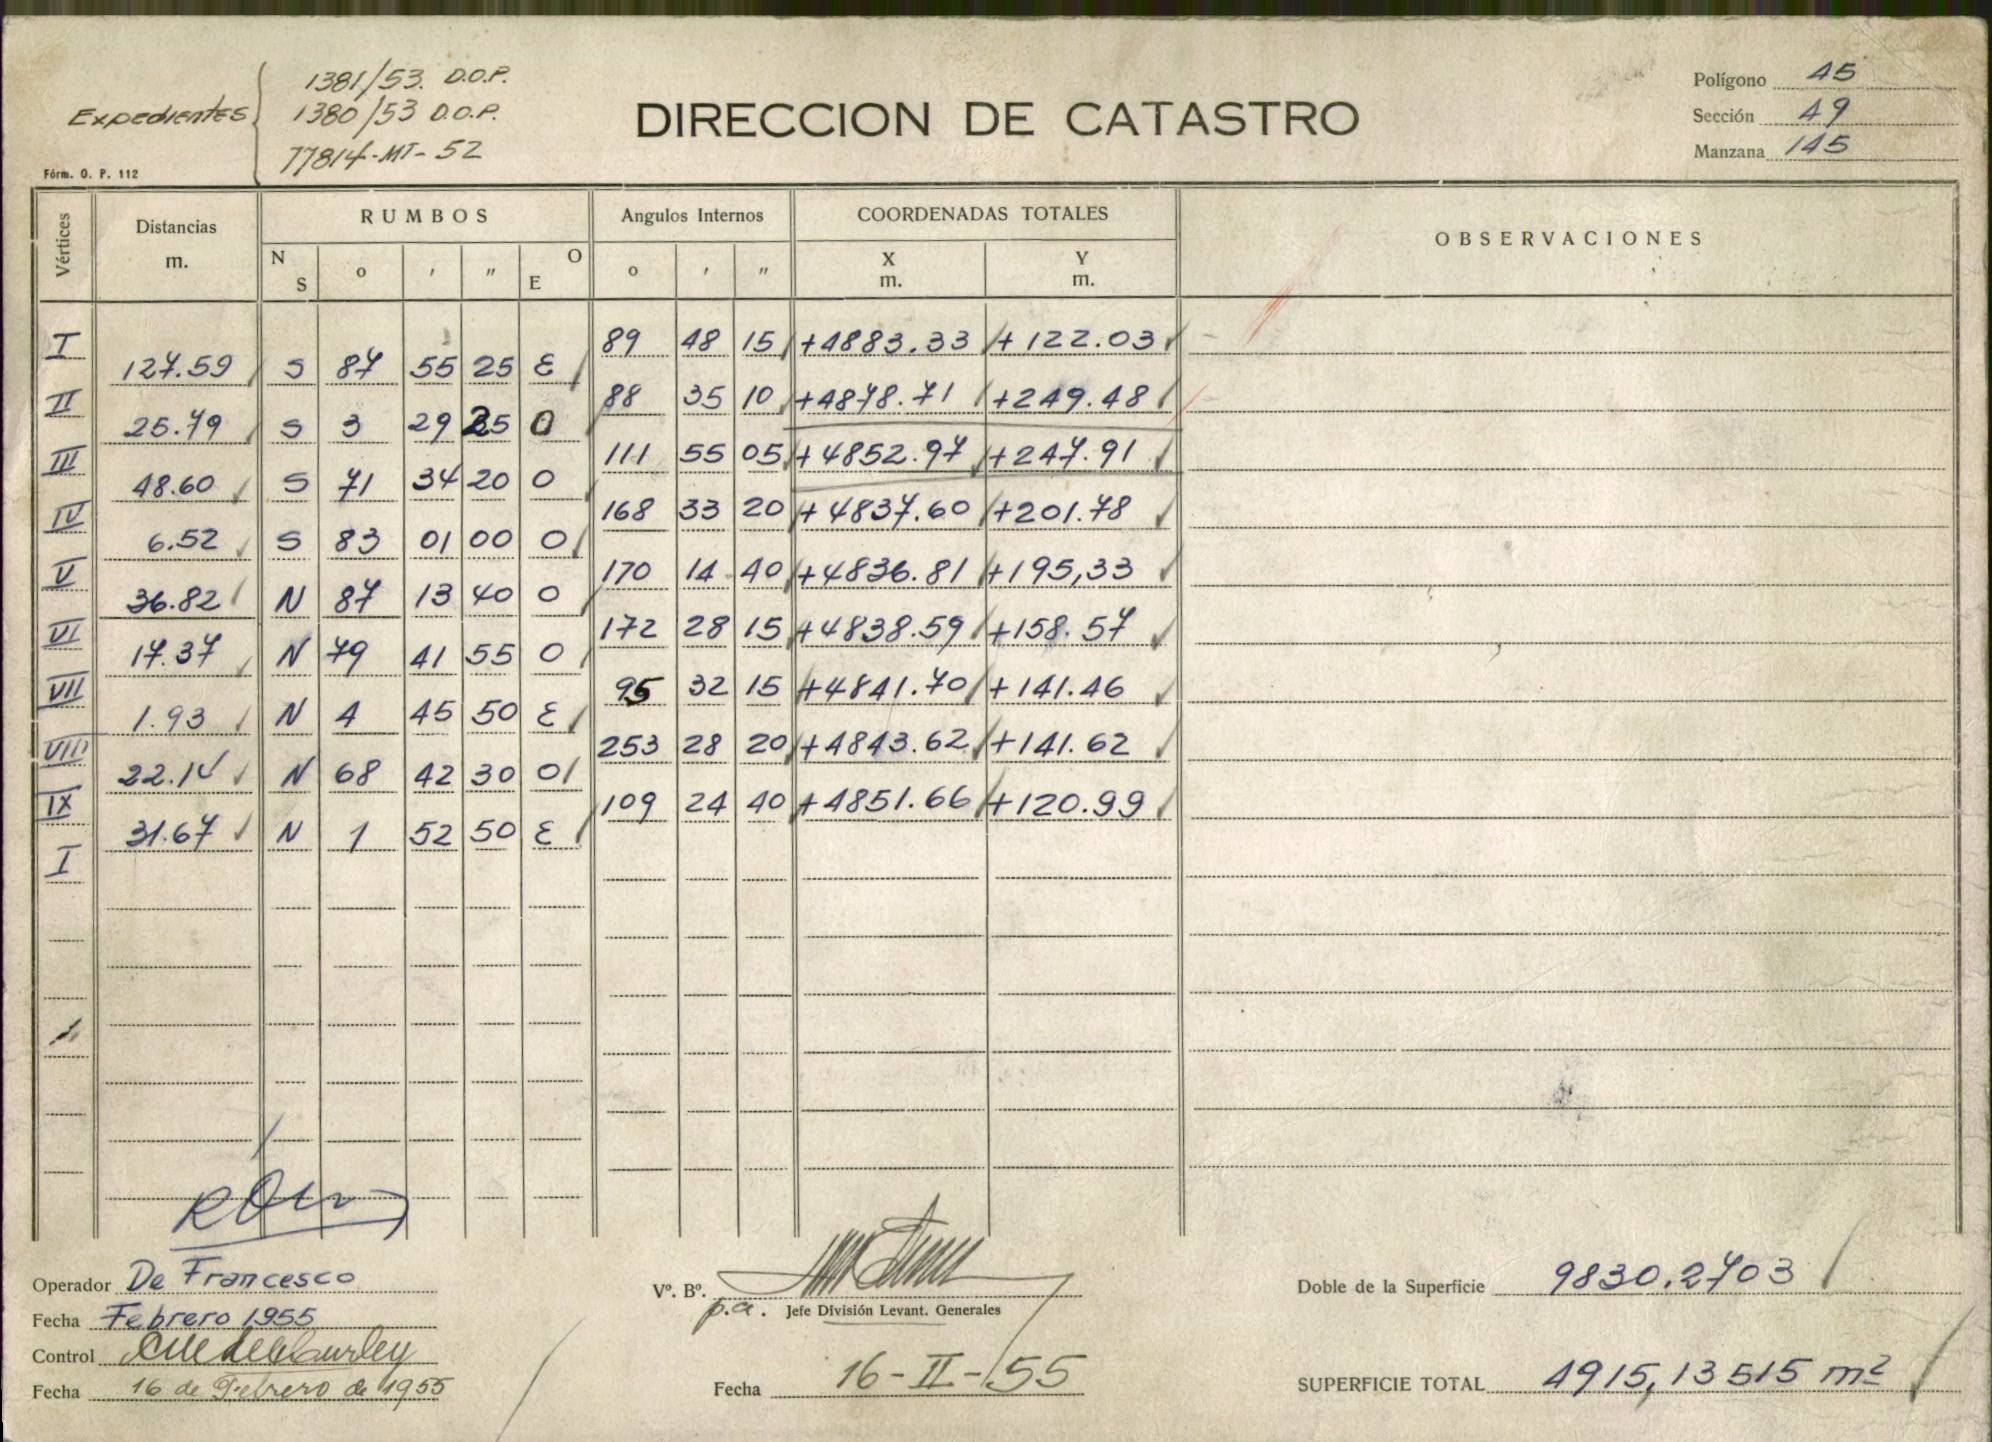 Expedientes
1381/53. D.O.P.
1380/53 D.O.P.
77814-MT-52
Fórm. O. P. 112
DIRECCION DE CATASTRO
Polígono 45
Sección 49
Manzana 145
Vértices Distancias m. RUMBOS Angulos Internos COORDENADAS TOTALES OBSERVACIONES
N S o ' " O E o ' " X m. Y m.
I 89 48 15 +4883.33 +122.03
127.59 S 87 55 25 E
II 88 35 10 +4878.71 +249.48
25.79 S 3 29 25 O
III 111 55 05 +4852.97 +247.91
48.60 S 71 34 20 O
IV 168 33 20 +4837.60 +201.78
6.52 S 83 01 00 O
V 170 14 40 +4836.81 +195,33
36.82 N 87 13 40 O
VI 172 28 15 +4838.59 +158.57
17.37 N 79 41 55 O
VII 95 32 15 +4841.70 +141.46
1.93 N 4 45 50 E
VIII 253 28 20 +4843.62 +141.62
22.14 N 68 42 30 O
IX 109 24 40 +4851.66 +120.99
31.67 N 1 52 50 E
I
Operador De Francesco
Fecha Febrero 1955
Control
Fecha 16 de Febrero de 1955
Vº. Bº.
p.a. Jefe División Levant. Generales
Fecha 16-II-55
Doble de la Superficie 9830.2703
SUPERFICIE TOTAL 4915,13515 m²